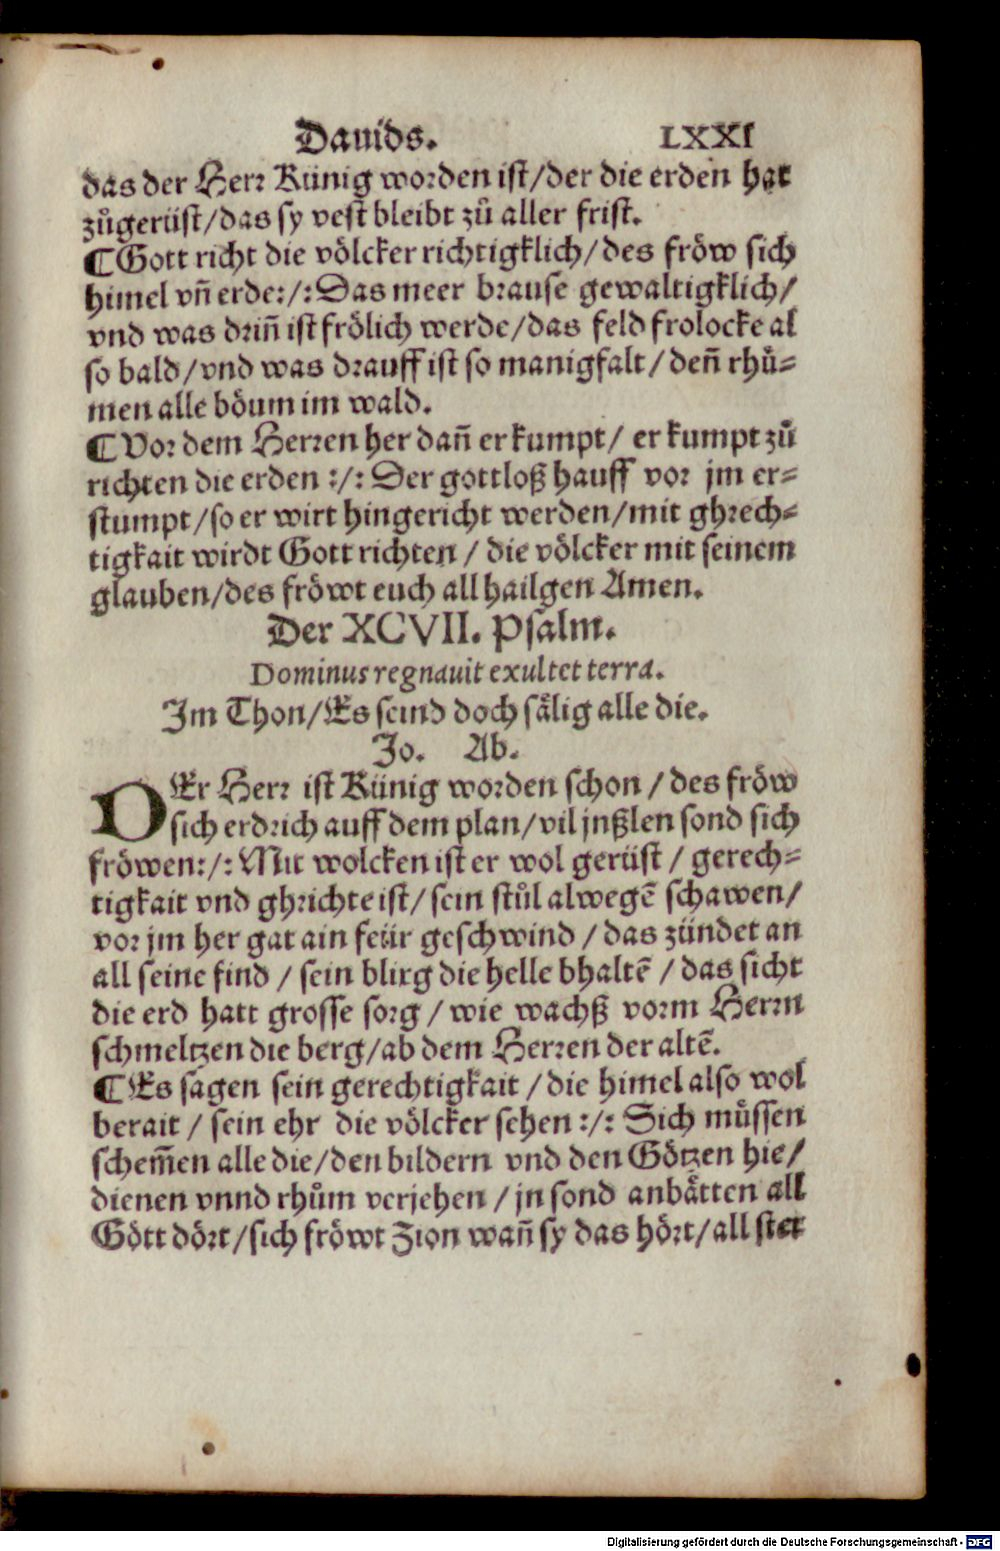 Dauids. LXXI
das der Herr Künig worden ist/der die erden hat
zůgerüst/das sy vest bleibt zů aller frist.
¶Gott richt die völcker richtigklich/des fröw sich
himel vñ erde:/:Das meer brause gewaltigklich/
vnd was driñ ist frölich werde/das feld frolocke al
so bald/vnd was drauff ist so manigfalt/deñ rhů-
men alle böum im wald.
¶Vor dem Herren her dañ er kumpt/ er kumpt zů
richten die erden :/: Der gottloß hauff vor jm er-
stumpt/so er wirt hingericht werden/mit ghrech-
tigkait wirdt Gott richten / die völcker mit seinem
glauben/des fröwt euch all hailgen Amen.
Der XCVII. Psalm.
Dominus regnauit exultet terra.
Im Thon/Es seind doch sälig alle die.
Jo. Ab.
DEr Herr ist Künig worden schon / des fröw
sich erdrich auff dem plan/vil jnßlen sond sich
fröwen:/: Mit wolcken ist er wol gerüst / gerech-
tigkait vnd ghrichte ist/ sein stůl alwegẽ schawen/
vor jm her gat ain feür geschwind / das zündet an
all seine find / sein blixg die helle bhaltẽ / das sicht
die erd hatt grosse sorg / wie wachß vorm Herrn
schmeltzen die berg/ab dem Herren der altẽ.
¶Es sagen sein gerechtigkait / die himel also wol
berait / sein ehr die völcker sehen :/: Sich müssen
schem̃en alle die/den bildern vnd den Götzen hie/
dienen vnnd rhům verjehen / jn sond anbätten all
Gött dört/sich fröwt Zion wañ sy das hört/all stet
Digitalisierung gefördert durch die Deutsche Forschungsgemeinschaft - DFG